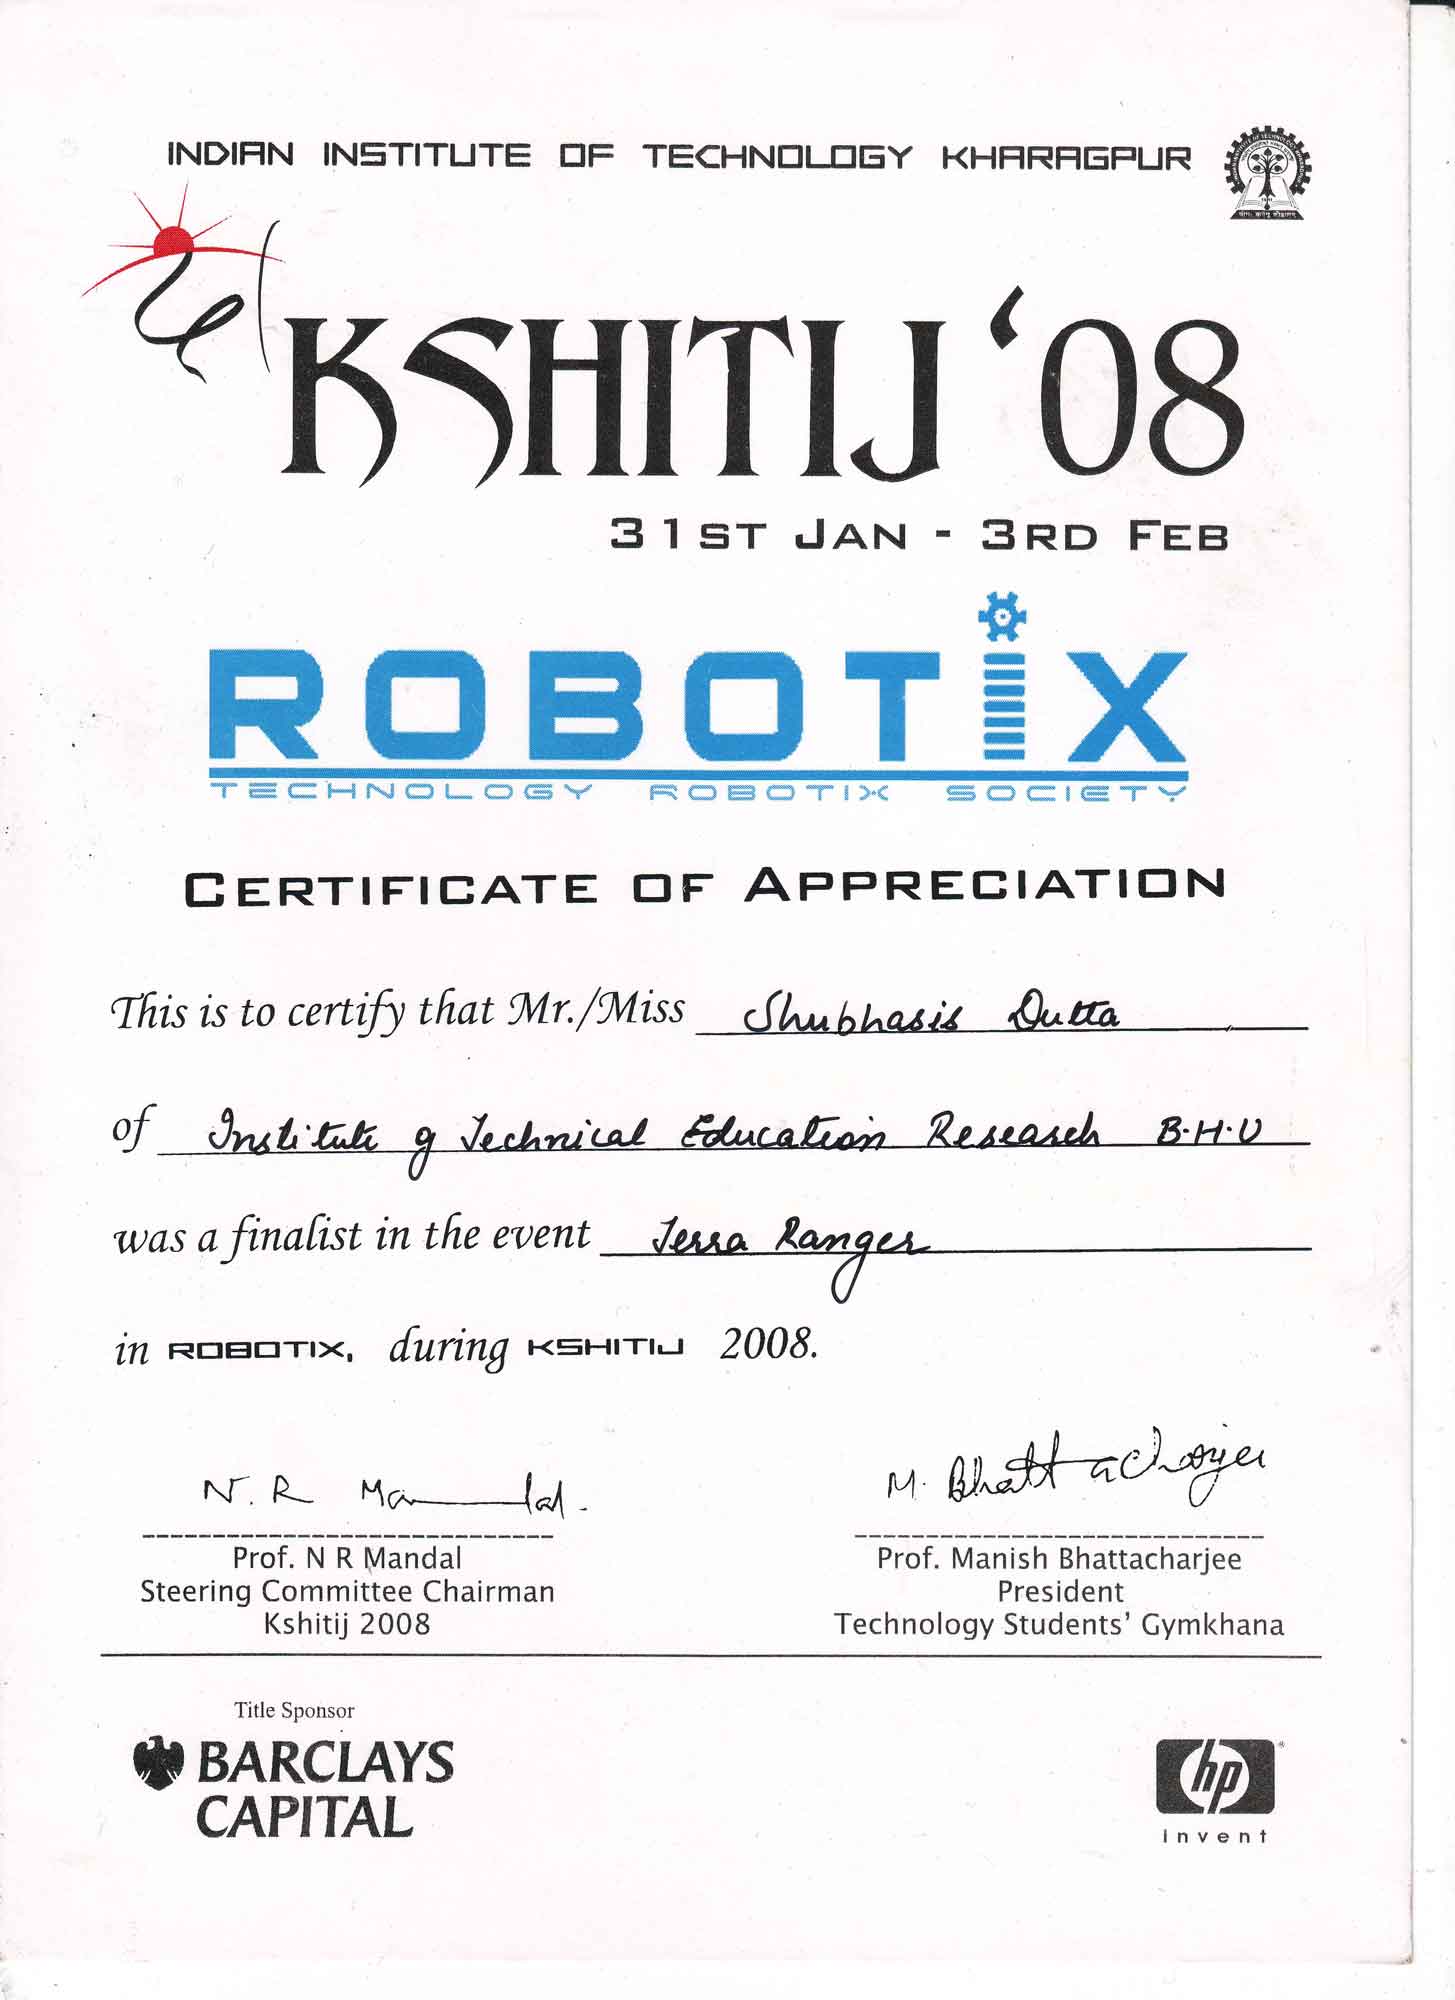 INDIAN INSTITUTE OF TECHNOLOGY KHARAGPUR
KSHITIJ '08
31ST JAN - 3RD FEB
ROBOTIX
TECHNOLOGY ROBOTIX SOCIETY
CERTIFICATE OF APPRECIATION
This is to certify that Mr./Miss Shubhasis Dutta
of Institute of Technical Education Research B.H.U
was a finalist in the event Terra Ranger
in ROBOTIX, during KSHITIJ 2008.
N. R Mandal.
M. Bhattacharjee
Prof. N R Mandal
Steering Committee Chairman
Kshitij 2008
Prof. Manish Bhattacharjee
President
Technology Students' Gymkhana
Title Sponsor
BARCLAYS
CAPITAL
hp
invent